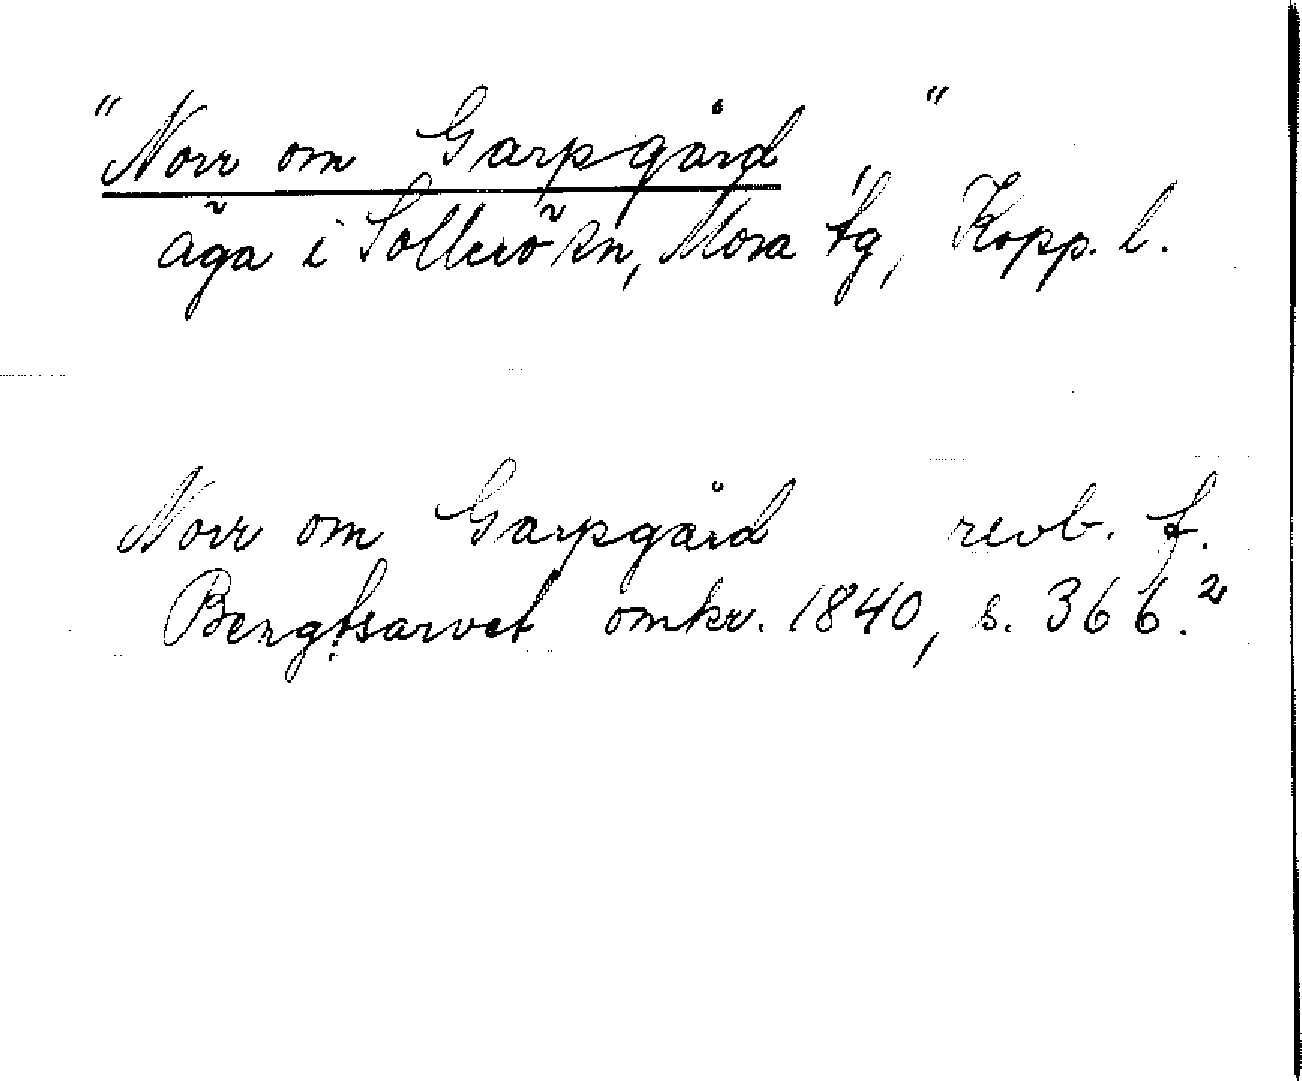 "Norr om Garpgård "
äga i Sollerö sn, Mora tg, Kopp. l.
Norr om Garpgård revb. f.
Bengtsarvet omkr. 1840, s. 366.²